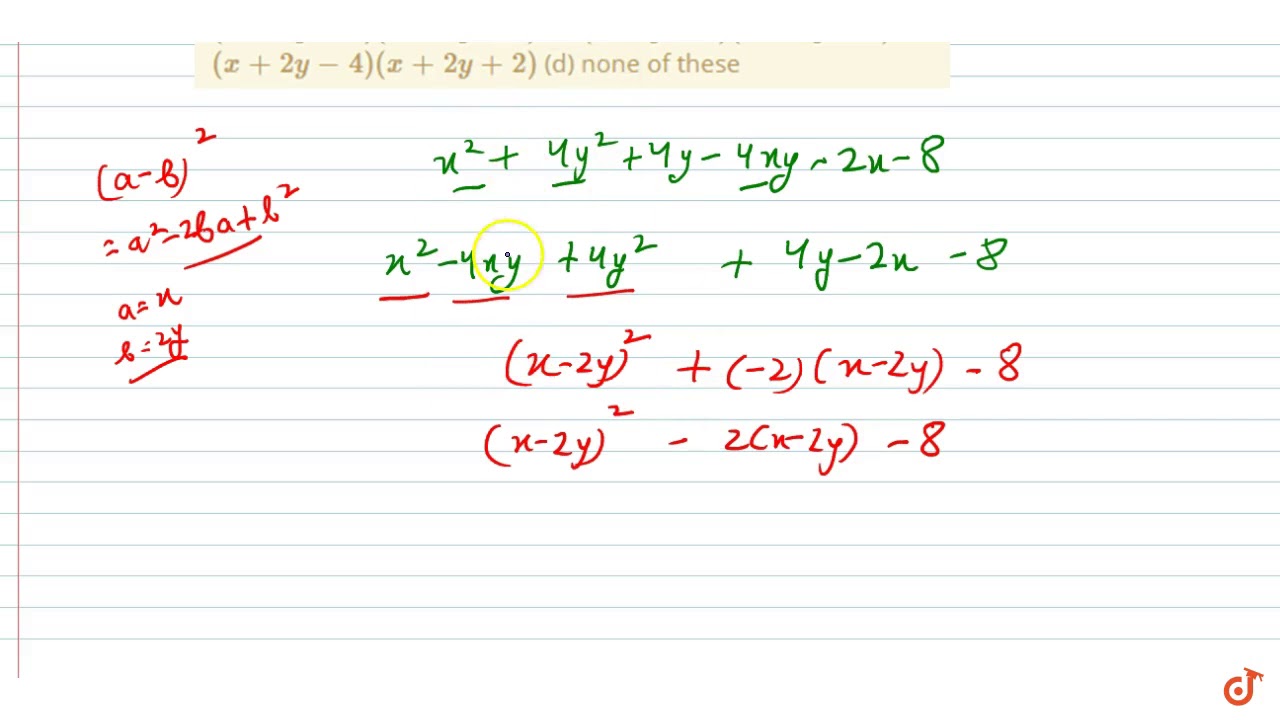 (x + 2y − 4)(x + 2y + 2) (d) none of these
(a-b)²
= a²-2ba+b²
a=x
b=2y
x² + 4y² + 4y - 4xy - 2x - 8
x² - 4xy + 4y² + 4y - 2x - 8
(x-2y)² + (-2)(x-2y) - 8
(x-2y)² - 2(x-2y) - 8